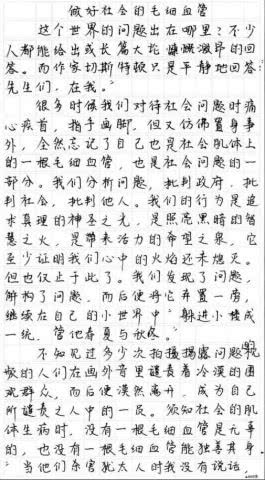 做好社会的毛细血管
这个世界的问题出在哪里?不少
人都能给出或长篇大论、慷慨激昂的回
答。而作家切斯特顿只是平静地回答:"
先生们,在我。"
很多时候我们对待社会问题时痛
心疾首,指手画脚,但又仿佛置身事
外,全然忘记了自己也是社会肌体上
的一根毛细血管,也是社会问题的一
部分。我们分析问题,批判政府,批
判社会,批判他人。我们的行为是追
求真理的神圣之光,是照亮黑暗的智
慧之火,是带来活力的希望之泉,它
至少证明我们心中的火焰还未熄灭。
但也仅止于此了。我们发现了问题,
解构了问题,而后便将它弃置一旁,
继续在自己的小世界中"躲进小楼成
一统,管他春夏与秋冬。"
不知见过多少次拍摄揭露问题视
频的人们在画外音里谴责着冷漠的围
观群众,而后便漠然离开,成为自己
所谴责之人中的一员。须知社会的肌
体生病时,没有一根毛细血管是无辜
的,也没有一根毛细血管能独善其身。
"当他们杀害犹太人时我没有说话,